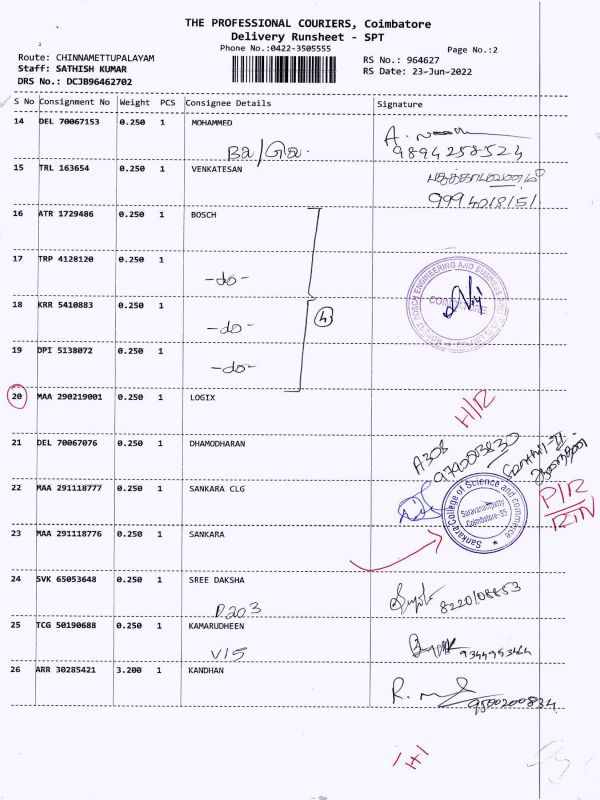 THE PROFESSIONAL COURIERS, Coimbatore
Delivery Runsheet - SPT
Phone No.:0422-3505555
Page No.:2
Route: CHINNAMETTUPALAYAM
Staff: SATHISH KUMAR
DRS No.: DCJB96462702
RS No.: 964627
RS Date: 23-Jun-2022
S No Consignment No Weight PCS Consignee Details Signature
14 DEL 70067153 0.250 1 MOHAMMED
9894258524
15 TRL 163654 0.250 1 VENKATESAN
9994018151
16 ATR 1729486 0.250 1 BOSCH
17 TRP 4128120 0.250 1
-do-
18 KRR 5410883 0.250 1
-do-
4
19 DPI 5138072 0.250 1
-do-
20 MAA 290219001 0.250 1 LOGIX
H/R
21 DEL 70067076 0.250 1 DHAMODHARAN
A308
22 MAA 291118777 0.250 1 SANKARA CLG
Sankara College of Science and commerce
Saravanampatty
Coimbatore-35
P/R
RTN
23 MAA 291118776 0.250 1 SANKARA
24 SVK 65053648 0.250 1 SREE DAKSHA
D203
25 TCG 50190688 0.250 1 KAMARUDHEEN
V15
26 ARR 30285421 3.200 1 KANDHAN
9500200834